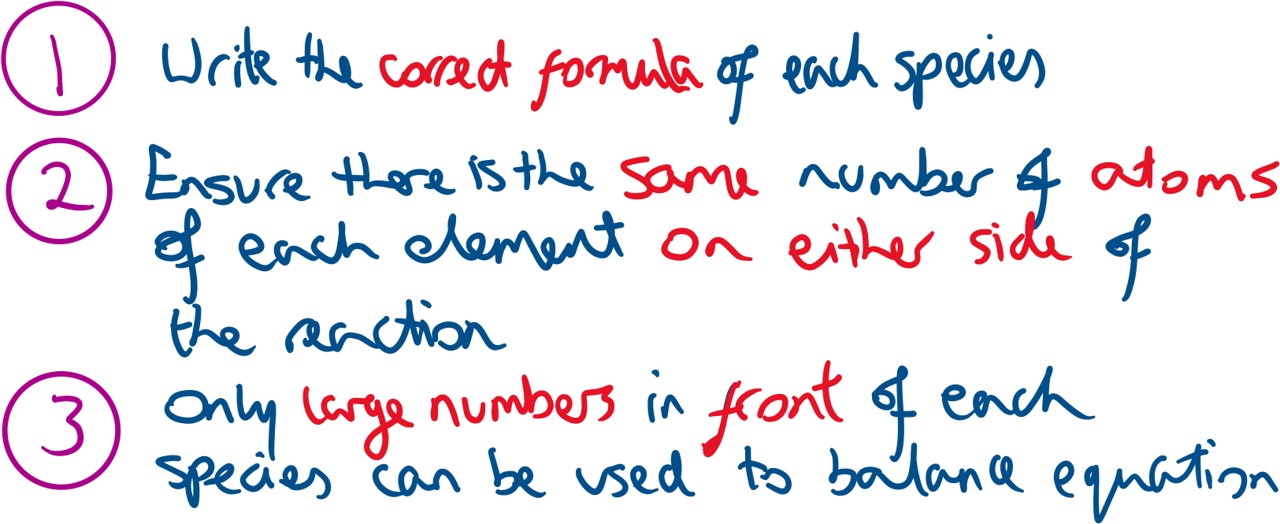 1 Write the correct formula of each species
2 Ensure there is the same number of atoms
of each element on either side of
the reaction
3 Only large numbers in front of each
species can be used to balance equation